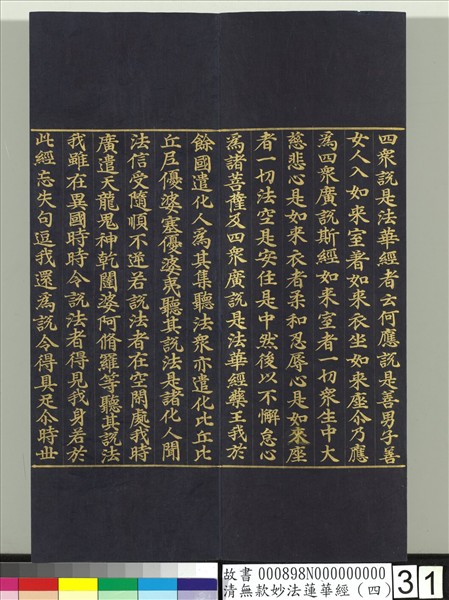 四衆說是法華經者云何應說是善男子善
女人入如来室著如来衣坐如来座尒乃應
爲四衆廣說斯經如来室者一切衆生中大
慈悲心是如来衣者柔和忍辱心是如来座
者一切法空是安住是中然後以不懈怠心
爲諸菩薩及四衆廣說是法華經藥王我於
餘國遣化人爲其集聽法衆亦遣化比丘比
丘尼優婆塞優婆夷聽其說法是諸化人聞
法信受隨順不逆若說法者在空閑處我時
廣遣天龍鬼神乾闥婆阿脩羅等聽其說法
我雖在異國時時令說法者得見我身若於
此經忘失句逗我還爲說令得具足尒時世
故書 000898N000000000
清無款妙法蓮華經(四)
31